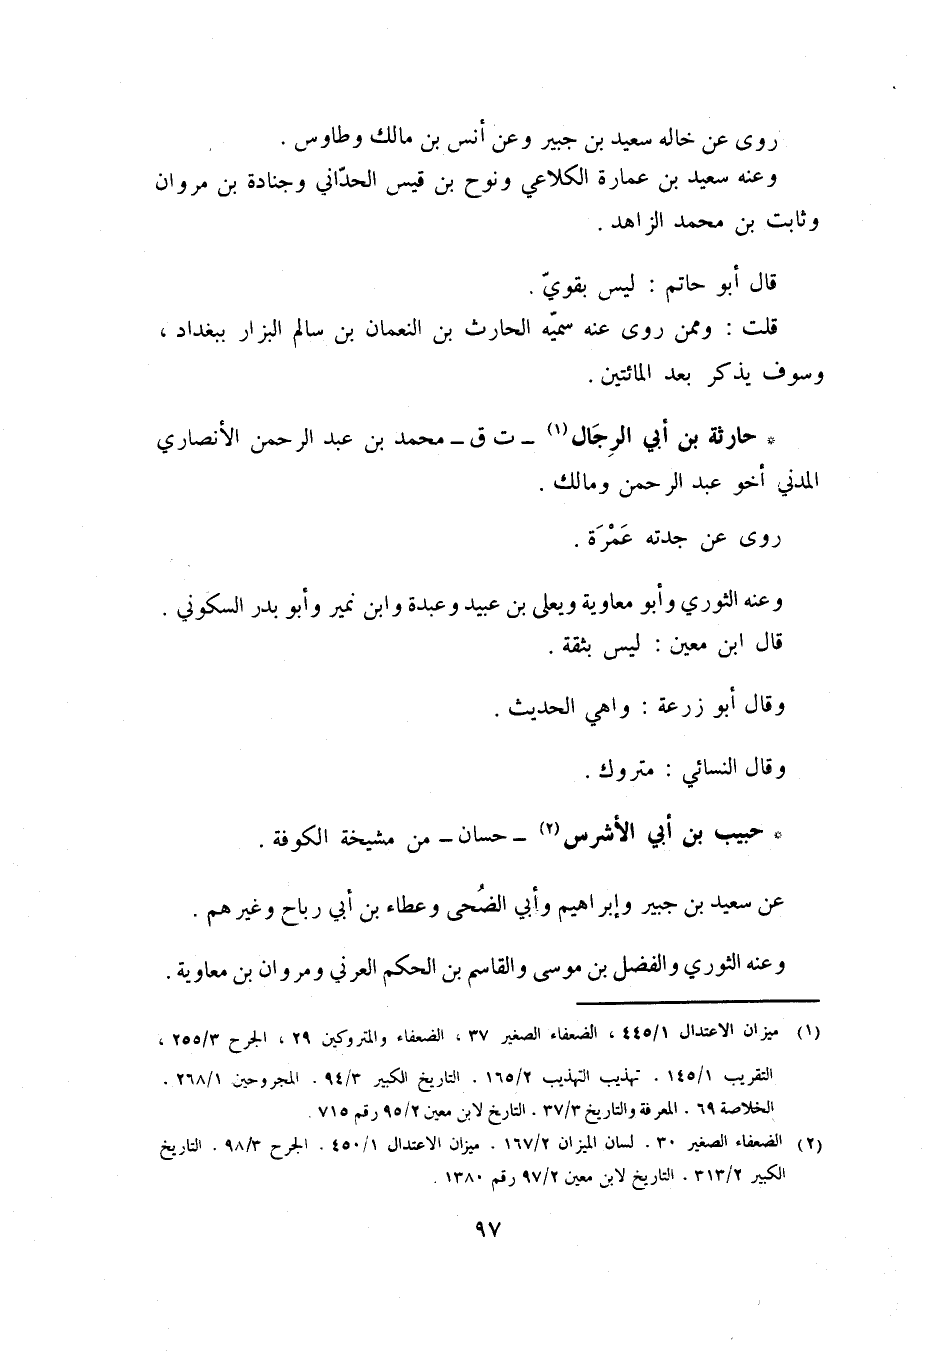 روى عن خاله سعيد بن جبير وعن أنس بن مالك وطاوس .
وعنه سعيد بن عمارة الكلاعي ونوح بن قيس الحدّاني وجنادة بن مروان
وثابت بن محمد الزاهد .
قال أبو حاتم : ليس بقويّ .
قلت : وممن روى عنه سميّه الحارث بن النعمان بن سالم البزار ببغداد ،
وسوف يذكر بعد المائتين .
* حارثة بن أبي الرِجَال (١) ــ ت ق ــ محمد بن عبد الرحمن الأنصاري
المدني أخو عبد الرحمن ومالك .
روى عن جدته عَمْرَة .
وعنه الثوري وأبو معاوية ويعلى بن عبيد وعبدة وابن نمير وأبو بدر السكوني .
قال ابن معين : ليس بثقة .
وقال أبو زرعة : واهي الحديث .
وقال النسائي : متروك .
* حبيب بن أبي الأشرس (٢) ــ حسان ــ من مشيخة الكوفة .
عن سعيد بن جبير وإبراهيم وأبي الضُحى وعطاء بن أبي رباح وغيرهم .
وعنه الثوري والفضل بن موسى والقاسم بن الحكم العرني ومروان بن معاوية .
(١) ميزان الاعتدال ٤٤٥/١ ، الضعفاء الصغير ٣٧ ، الضعفاء والمتروكين ٢٩ ، الجرح ٢٥٥/٣ ،
التقريب ١٤٥/١ . تهذيب التهذيب ١٦٥/٢ . التاريخ الكبير ٩٤/٣ . المجروحين ٢٦٨/١ .
الخلاصة ٦٩ . المعرفة والتاريخ ٣٧/٣ . التاريخ لابن معين ٩٥/٢ رقم ٧١٥ .
(٢) الضعفاء الصغير ٣٠ . لسان الميزان ١٦٧/٢ . ميزان الاعتدال ٤٥٠/١ . الجرح ٩٨/٣ . التاريخ
الكبير ٣١٣/٢ . التاريخ لابن معين ٩٧/٢ رقم ١٣٨٠ .
٩٧